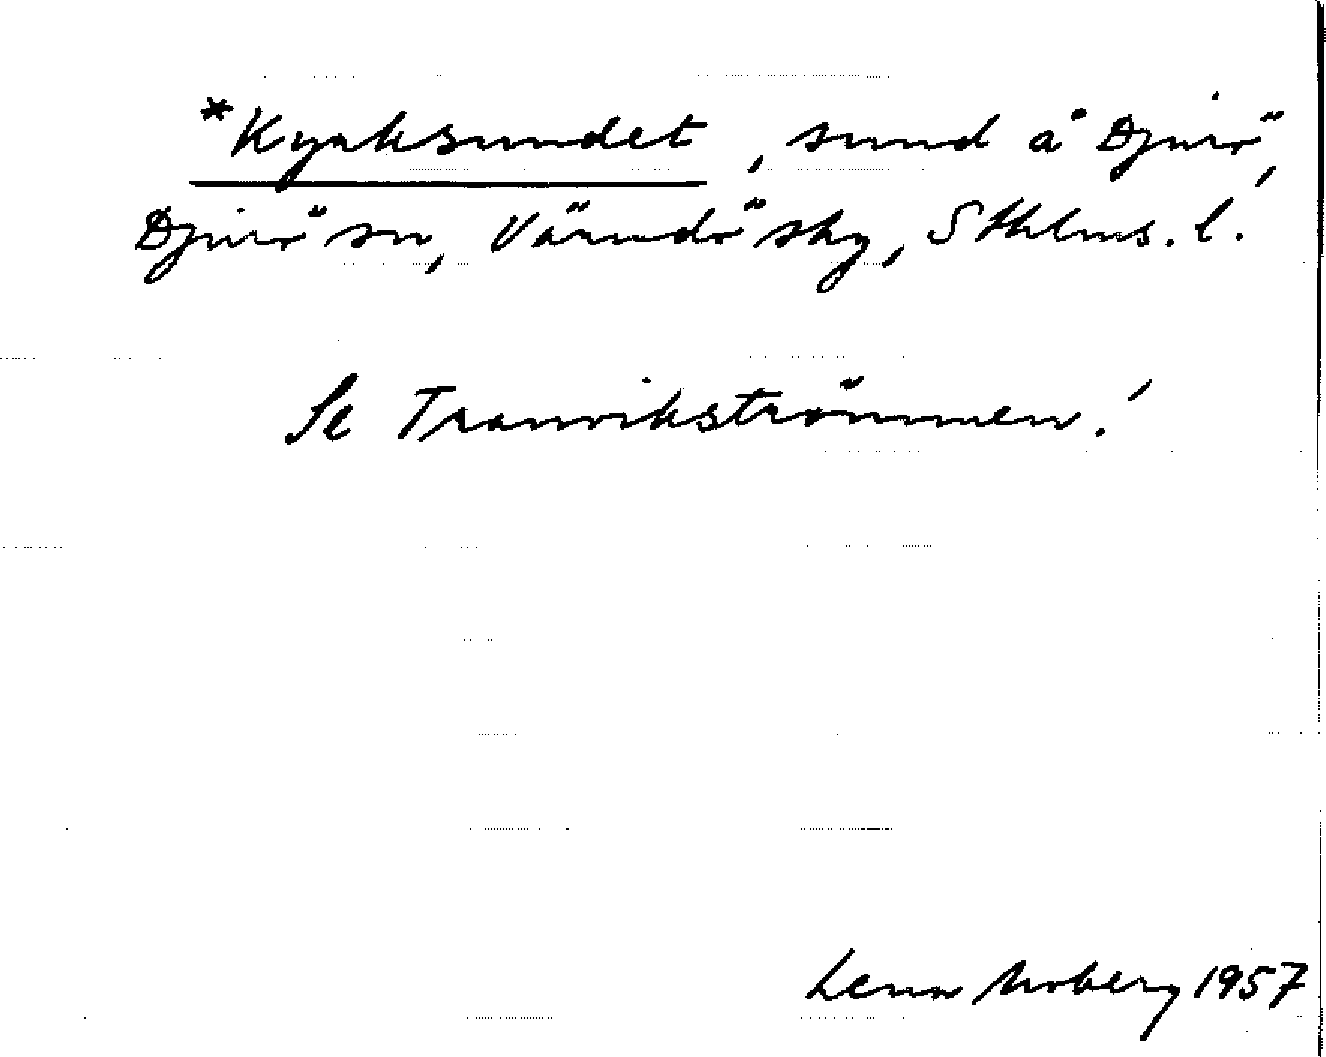 *Kyrksundet, sund å Djurö,
Djurö sn, Värmdö skg, Sthlms. l.
Se Tranvikströmmen!
Lena Moberg 1957